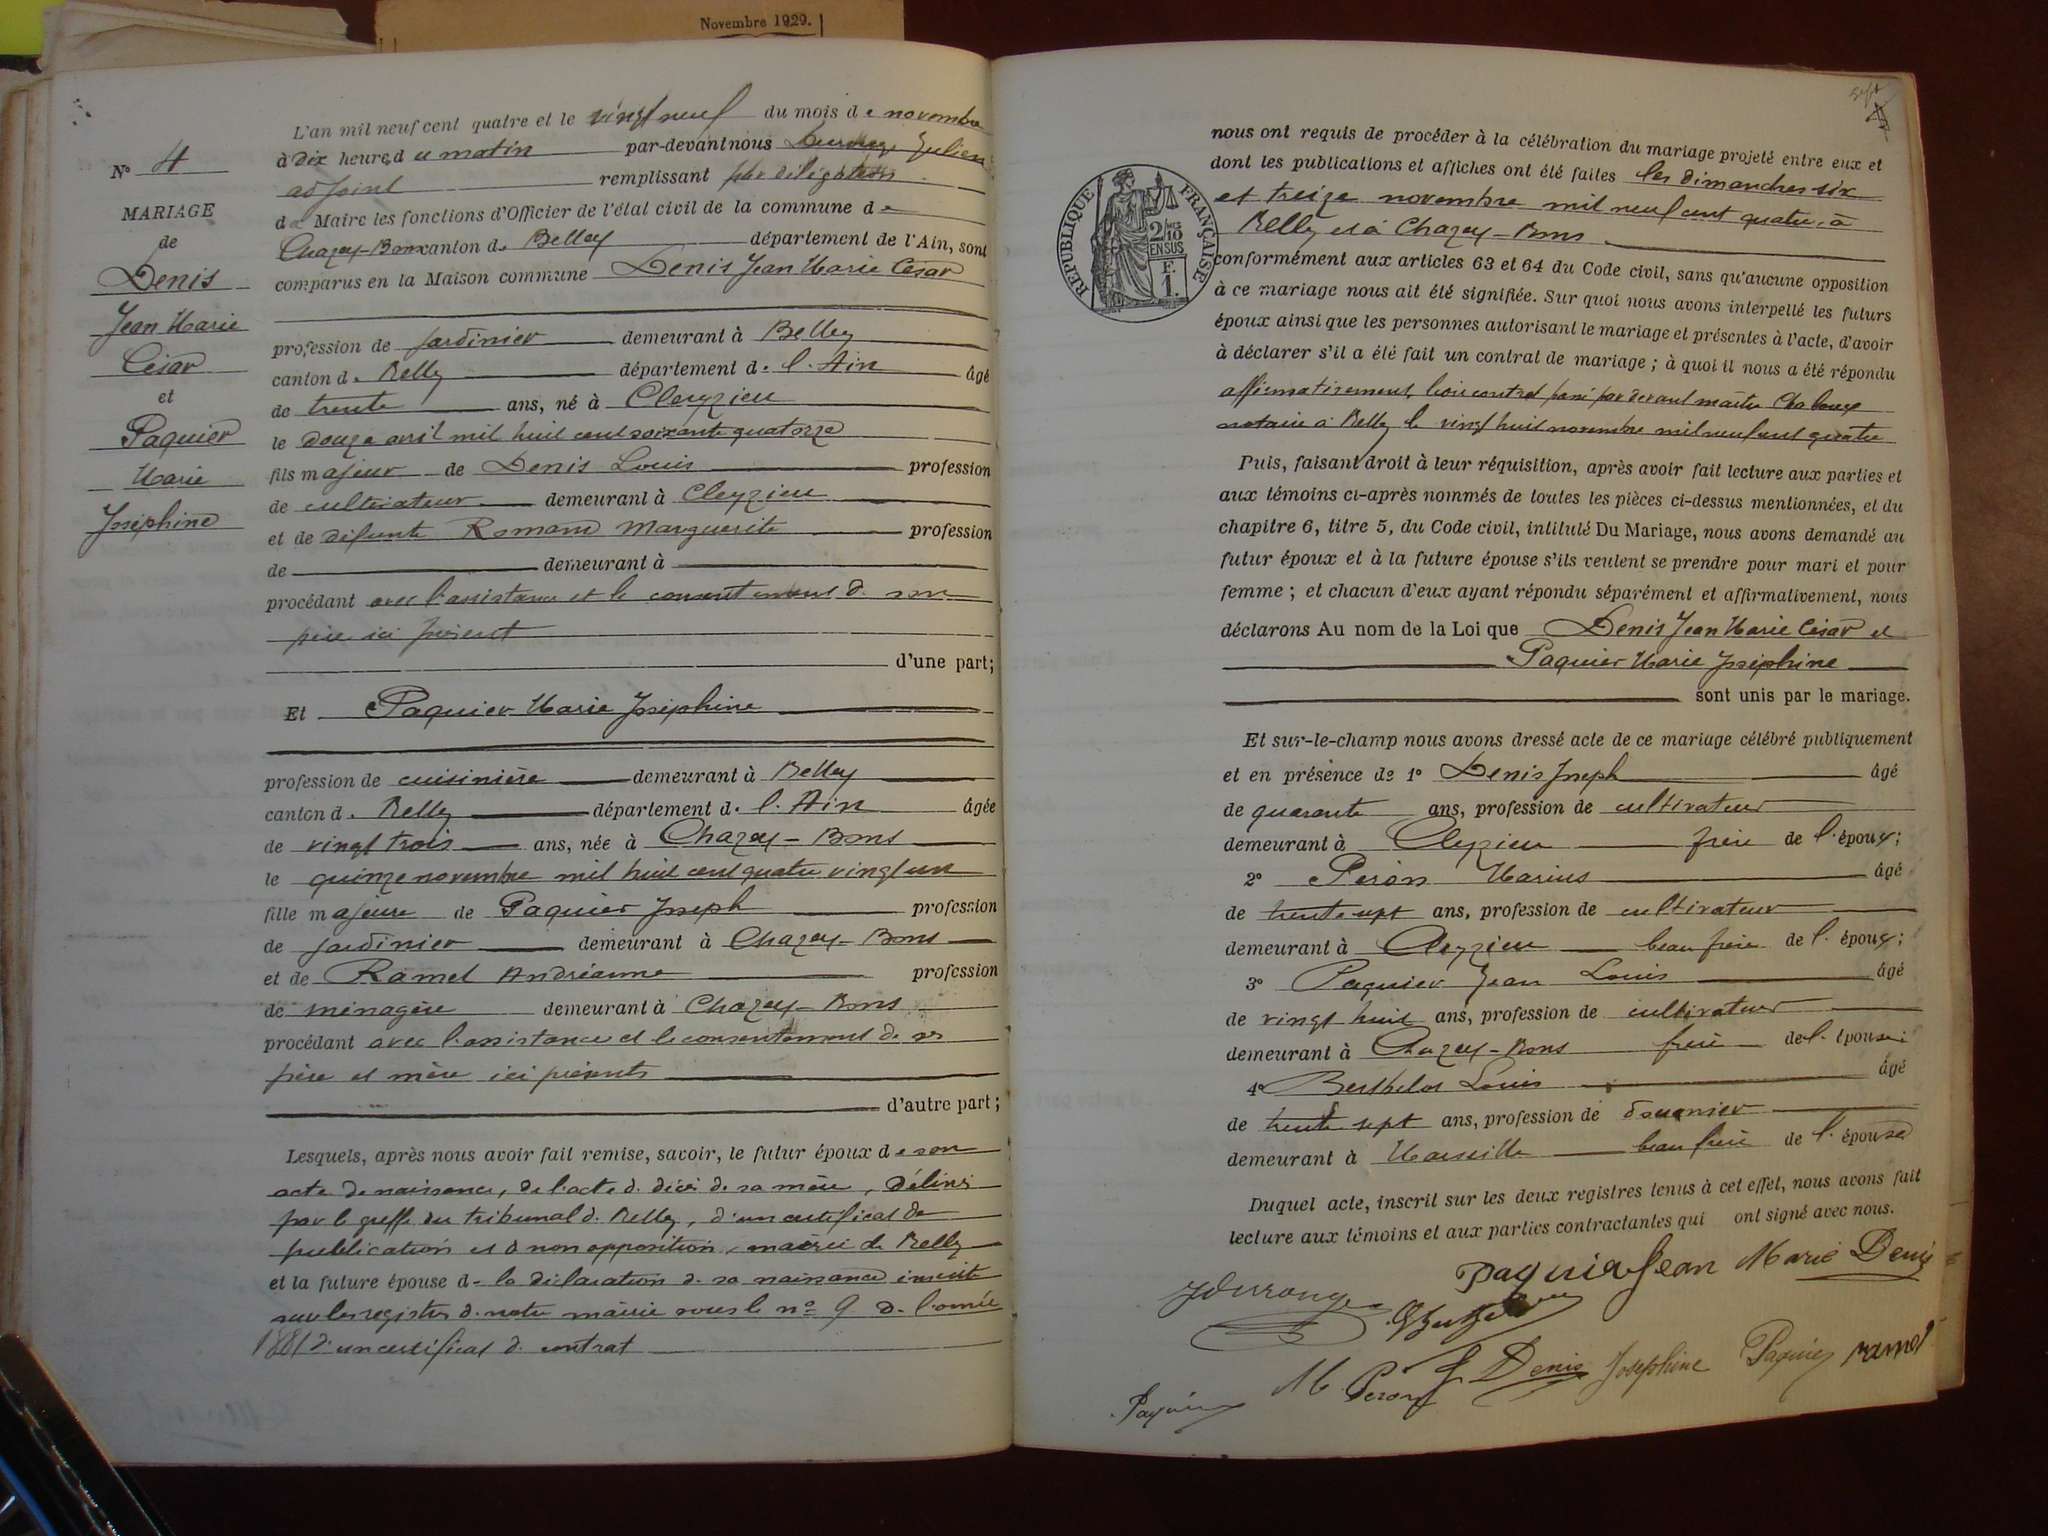 Novembre 1929.
N° 4
MARIAGE
de
Denis
Jean Marie
César
et
Paquier
Marie
Joséphine
L'an mil neuf cent quatre et le vingt neuf du mois de novembre
à dix heures du matin par-devant nous Durange Julien
adjoint remplissant par délégation
de Maire les fonctions d'Officier de l'état civil de la commune de
Chazey-Bons canton de Belley département de l'Ain, sont
comparus en la Maison commune Denis Jean Marie César
profession de jardinier demeurant à Belley
canton de Belley département de l'Ain âgé
de trente ans, né à Cleyzieu
le douze avril mil huit cent soixante quatorze
fils majeur de Denis Louis profession
de cultivateur demeurant à Cleyzieu
et de défunte Romand Marguerite profession
de demeurant à
procédant avec l'assistance et le consentement de son
père ici présent
d'une part;
Et Paquier Marie Joséphine
profession de cuisinière demeurant à Belley
canton de Belley département de l'Ain âgée
de vingt trois ans, née à Chazey-Bons
le quinze novembre mil huit cent quatre vingt un
fille majeure de Paquier Joseph profession
de jardinier demeurant à Chazey-Bons
et de Ramel Andréanne profession
de ménagère demeurant à Chazey-Bons
procédant avec l'assistance et le consentement de ses
père et mère ici présents
d'autre part;
Lesquels, après nous avoir fait remise, savoir, le futur époux de son
acte de naissance, de l'acte de décès de sa mère, délivrés
par le greffe du tribunal de Belley, d'un certificat de
publication et de non opposition, mairie de Belley
et la future épouse de la déclaration de sa naissance inscrite
sur les registres de notre mairie sous le n° 9 de l'année
1881 d'un certificat de contrat
sept
RÉPUBLIQUE FRANÇAISE
2/10
EN SUS
F.
1.
nous ont requis de procéder à la célébration du mariage projeté entre eux et
dont les publications et affiches ont été faites les dimanches six
et treize novembre mil neuf cent quatre à
Belley et à Chazey-Bons
conformément aux articles 63 et 64 du Code civil, sans qu'aucune opposition
à ce mariage nous ait été signifiée. Sur quoi nous avons interpellé les futurs
époux ainsi que les personnes autorisant le mariage et présentes à l'acte, d'avoir
à déclarer s'il a été fait un contrat de mariage; à quoi il nous a été répondu
affirmativement, contrat passé par devant maître
notaire à Belley le vingt huit novembre mil neuf cent quatre
Puis, faisant droit à leur réquisition, après avoir fait lecture aux parties et
aux témoins ci-après nommés de toutes les pièces ci-dessus mentionnées, et du
chapitre 6, titre 5, du Code civil, intitulé Du Mariage, nous avons demandé au
futur époux et à la future épouse s'ils veulent se prendre pour mari et pour
femme; et chacun d'eux ayant répondu séparément et affirmativement, nous
déclarons Au nom de la Loi que Denis Jean Marie César et
Paquier Marie Joséphine
sont unis par le mariage.
Et sur-le-champ nous avons dressé acte de ce mariage célébré publiquement
et en présence de 1° Denis Joseph âgé
de quarante ans, profession de cultivateur
demeurant à Cleyzieu frère de l'époux;
2° Peron Marius âgé
de trente sept ans, profession de cultivateur
demeurant à Cleyzieu beau frère de l'époux;
3° Paquier Jean Louis âgé
de vingt huit ans, profession de cultivateur
demeurant à Chazey-Bons frère de l'épouse;
4° Berthelot Louis âgé
de trente sept ans, profession de douanier
demeurant à Marseille beau frère de l'épouse
Duquel acte, inscrit sur les deux registres tenus à cet effet, nous avons fait
lecture aux témoins et aux parties contractantes qui ont signé avec nous.
JDurange Paquier Jean Marie Denis
M Peron J Denis Joséphine Paquier ramel
Paquier